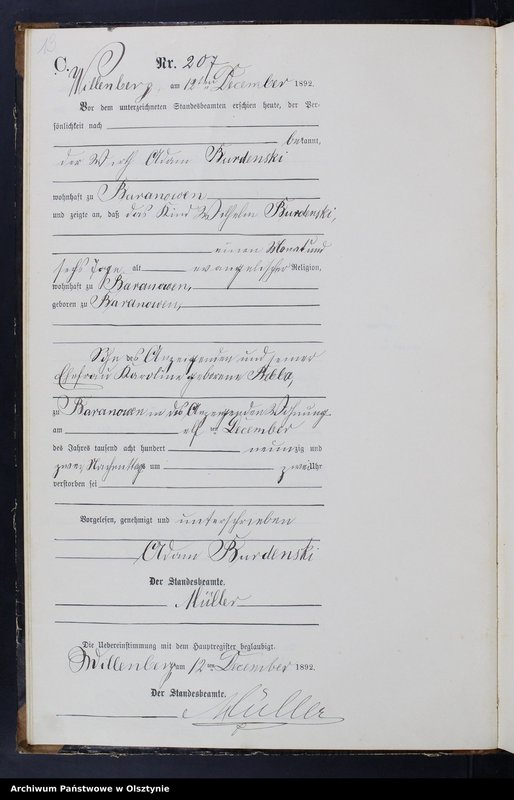 C.
Nr. 207
Willenberg, am 12ten December 1892.
Vor dem unterzeichneten Standesbeamten erschien heute, der Per-
sönlichkeit nach
bekannt,
der Wirth Adam Burdenski
wohnhaft zu Baranowen
und zeigte an, daß das Kind Wilhelm Burdenski,
einen Monat und
sechs Tage alt evangelischer Religion,
wohnhaft zu Baranowen,
geboren zu Baranowen,
Sohn des Anzeigenden und seiner
Ehefrau Karoline geborene
zu Baranowen in des Anzeigenden Wohnung
am elften December
des Jahres tausend acht hundert neunzig und
zwei Nachmittags um zwei Uhr
verstorben sei
Vorgelesen, genehmigt und unterschrieben
Adam Burdenski
Der Standesbeamte.
Müller
Die Uebereinstimmung mit dem Hauptregister beglaubigt.
Willenberg am 12ten December 1892.
Der Standesbeamte.
Müller
Archiwum Państwowe w Olsztynie